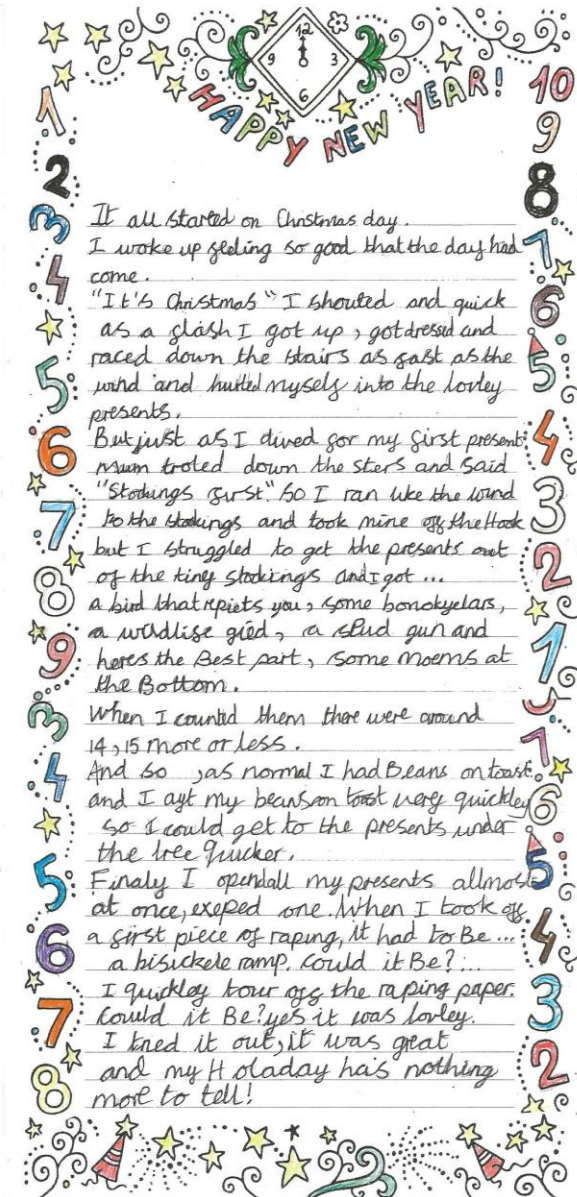 12
9 3
6
HAPPY NEW YEAR!
It all started on Christmas day.
I woke up feeling so good that the day had
come.
"It's Christmas" I shouted and quick
as a flash I got up, got dressed and
raced down the stairs as fast as the
wind and hurtled myself into the lovley
presents.
But just as I dived for my first present
mum troted down the sters and said
"Stockings first." so I ran like the wind
to the stockings and took mine off the Hook
but I struggled to get the presents out
of the tiny stockings and I got ...
a bird that repiets you, some bonokyelars,
a wildlife gied, a spud gun and
heres the Best part, some moems at
the Bottom.
When I counted them there were around
14, 15 more or less.
And so , as normal I had Beans on toast.
and I ayt my beans on toast very quickley
so I could get to the presents under
the tree quicker.
Finaly I opend all my presents allmost
at once, exeped one. When I took off
a first piece of raping, it had to Be ...
a bisickele ramp. could it Be? ...
I quickley tour off the raping paper.
Could it Be? yes it was lovley.
I tried it out, it was great
and my Holaday has nothing
more to tell!
1
2
3
4
5
6
7
8
9
3
4
5
6
7
8
10
9
8
7
6
5
4
3
2
1
7
6
5
4
3
2